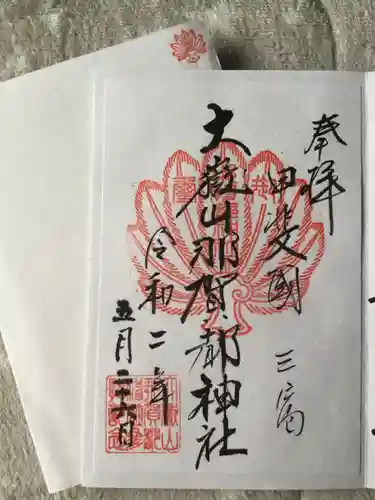 奉拝
甲斐國
三富
大嶽山那賀都神社
令和二年
五月二十六日